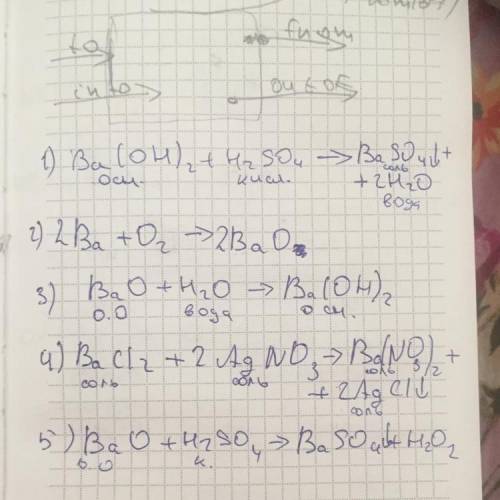 to
from
into
out of
1) Ba(OH)₂ + H₂SO₄ → BaSO₄↓ +
осн. кисл. соль
+ 2H₂O
вода
2) 2Ba + O₂ → 2BaO
3) BaO + H₂O → Ba(OH)₂
о.о вода осн.
4) BaCl₂ + 2AgNO₃ → Ba(NO₃)₂ +
соль соль соль
+ 2AgCl↓
соль
5) BaO + H₂SO₄ → BaSO₄↓ + H₂O₂
о.о к.